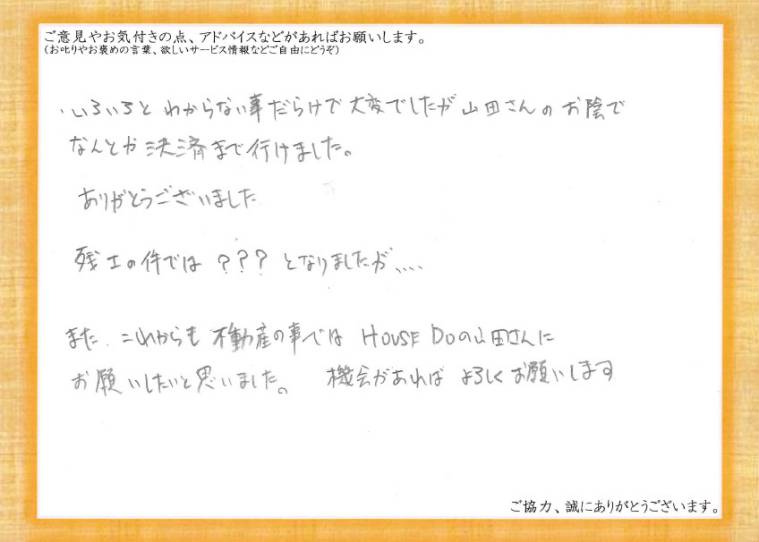 ご意見やお気付きの点、アドバイスなどがあればお願いします。
(お叱りやお褒めの言葉、欲しいサービス情報などご自由にどうぞ)
・いろいろと わからない事だらけで 大変でしたが 山田さんの お陰で
なんとか 決済まで行けました。
ありがとうございました
残土の件では ??? となりましたが、、、、
また、これからも 不動産の事では HOUSE Doの山田さんに
お願いしたいと思いました。 機会があれば よろしくお願いします
ご協力、誠にありがとうございます。